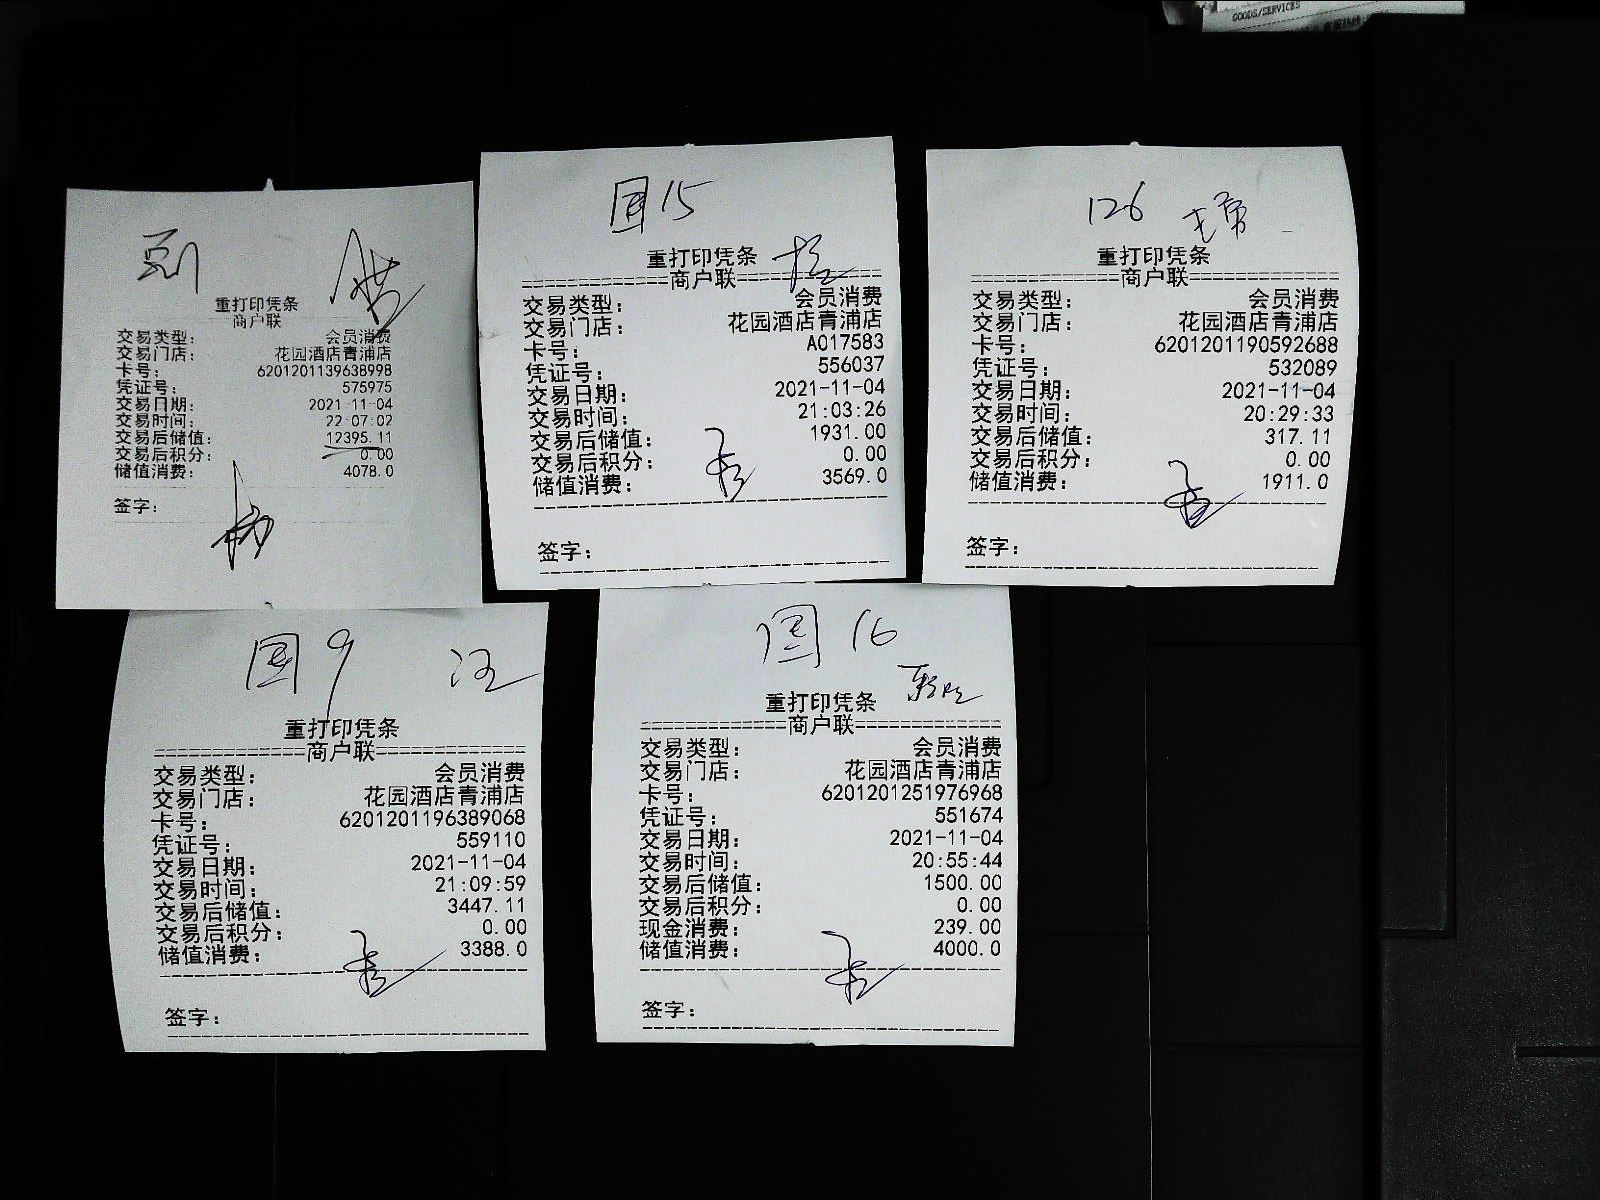 GOODS/SERVICES
重打印凭条
商户联
交易类型: 会员消费
交易门店: 花园酒店青浦店
卡号: 6201201139638998
凭证号: 575975
交易日期: 2021-11-04
交易时间: 22:07:02
交易后储值: 12395.11
交易后积分: 0.00
储值消费: 4078.0
签字:
国15
重打印凭条
==============商户联==============
交易类型: 会员消费
交易门店: 花园酒店青浦店
卡号: A017583
凭证号: 556037
交易日期: 2021-11-04
交易时间: 21:03:26
交易后储值: 1931.00
交易后积分: 0.00
储值消费: 3569.0
签字:
126
重打印凭条
==============商户联==============
交易类型: 会员消费
交易门店: 花园酒店青浦店
卡号: 6201201190592688
凭证号: 532089
交易日期: 2021-11-04
交易时间: 20:29:33
交易后储值: 317.11
交易后积分: 0.00
储值消费: 1911.0
签字:
国9 汪
重打印凭条
==============商户联==============
交易类型: 会员消费
交易门店: 花园酒店青浦店
卡号: 6201201196389068
凭证号: 559110
交易日期: 2021-11-04
交易时间: 21:09:59
交易后储值: 3447.11
交易后积分: 0.00
储值消费: 3388.0
签字:
国16
重打印凭条
==============商户联==============
交易类型: 会员消费
交易门店: 花园酒店青浦店
卡号: 6201201251976968
凭证号: 551674
交易日期: 2021-11-04
交易时间: 20:55:44
交易后储值: 1500.00
交易后积分: 0.00
现金消费: 239.00
储值消费: 4000.0
签字: